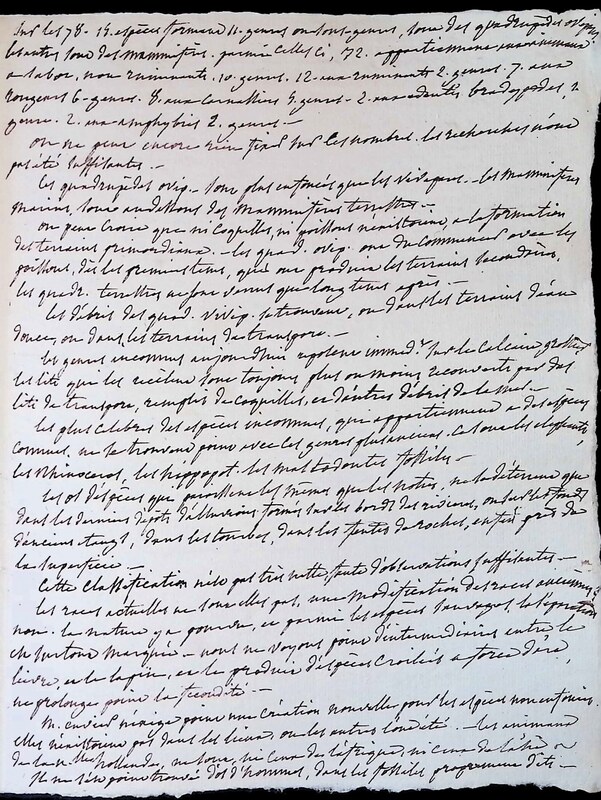 Sur les 78. 15. espèces formant 11. genres ou sous-genres, sont des quadrupèdes ovip.
les autres sont des mammifères. parmi celles ci, 72. appartiennent aux animaux
a sabot, non ruminants. 10. genres. 12. aux ruminants 2. genres. 7. aux
rongeurs 6. genres. 8. aux carnassiers 5. genres. 2. aux édentés bradypodes, 1
genre. 2. aux amphybis 2. genres. —
on ne peut encore rien fixer sur ces nombres. les recherches n'ont
pas été suffisantes. —
les quadrupèdes ovip. sont plus enfoncés que les vivipares. — les mammifères
marins, sont au dessous des mammifères terrestres —
on peut croire que ni coquilles, ni poissons n'existoient, a la formation
des terrains primordiaux. — les quad. ovip. ont du commencer avec les
poissons, dès les premiers tems, qui ont produit les terrains secondaires,
les quadr. terrestres ne sont venus que longtems après. —
les débris des quad. vivip. se trouvent, ou dans les terrains d'eau
douce, ou dans les terrains de transport. —
les genres inconnus aujourdhui reposent immed.t sur le calcaire grossier
les lits qui les recèlent sont toujours plus ou moins recouverts par des
lits de transport, remplis de coquilles, et d'autres débris de la mer. —
les plus celebres des espèces inconnues, qui appartiennent a des espèces
connues, ne se trouvent point avec ces genres plus anciens. ce sont les elephants,
les rhinoceros, les hippopot. les mastodontes fossiles —
les os d'espèces qui paroissent les mêmes que les notres, ne se déterrent que
dans les derniers dépots d'alluvions formés sur les bords des rivières, ou sur les fonds
d'anciens étangs, dans les tourbes, dans les fentes de roches, enfin près de
la superficie —
Cette classification n'est pas très nette faute d'observations suffisantes —
les races actuelles ne sont elles pas, une modification des races anciennes?
non. la nature y a pourvu, et parmi les espèces sauvages la séparation
est surtout marquée — nous ne voyons point d'intermediaires entre le
lièvre et le lapin, et le produit d'espèces croisées a force d'art,
ne prolonge point la fécondité. —
M. cuvier n'exige point une création nouvelle pour les espèces non enfouies.
elles n'existoient pas dans les lieux, ou les autres l'ont été. — les animaux
de la n.lle hollande, ne sont, ni ceux de l'afrique, ni ceux de l'asie —
Il ne s'est point trouvé d'os d'hommes, dans les fossiles proprement dits —